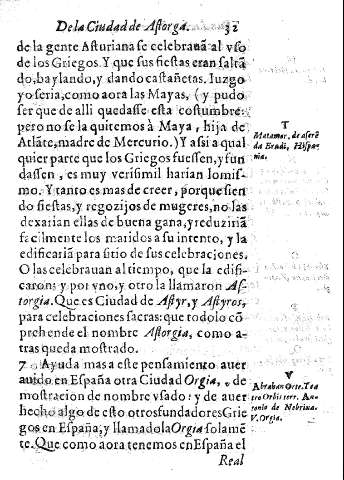 De la Ciudad de Astorga. 32
de la gente Asturiana se celebrauã al vso
de los Griegos. Y que sus fiestas eran saltã
do, baylando, y dando castañetas. Iuzgo
yo seria, como aora las Mayas, (y pudo
ser que de alli quedasse esta costumbre:
pero no se la quitemos à Maya, hija de
Atlãte, madre de Mercurio.) Y assi a qual
quier parte que los Griegos fuessen, y fun
dassen, es muy verisimil harian lo mis-
mo. Y tanto es mas de creer, porque sien
do fiestas, y regozijos de mugeres, no las
dexarian ellas de buena gana, y reduziriã
facilmente los maridos a su intento, y la
edificariã para sitio de sus celebraciones.
O las celebrauan al tiempo, que la edifi-
caron: y por vno, y otro la llamaron As-
torgia. Que es Ciudad de Astyr, y Astyros,
para celebraciones sacras: que todo lo cõ
prehende el nombre Astorgia, como a-
tras queda mostrado.
7 Ayuda mas a este pensamiento auer
auido en España otra Ciudad Orgia, de
mostracion de nombre vsado: y de auer
hecho algo de esto otros fundadores Grie
gos en España; y llamadola Orgia solamē
te. Que como aora tenemos en España el
Real
T
Matamor. de aserē
da Erudi, Hispa
nia.
V
Abraban Orte. Tea
tro Orbis terr. An-
tonio de Nebrixa.
V. Orgia.